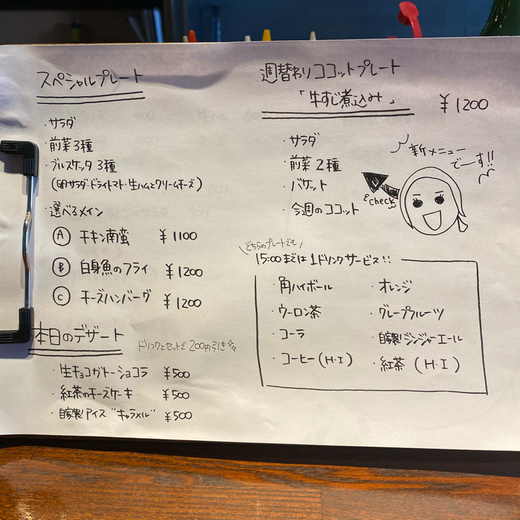 スペシャルプレート
・サラダ
・前菜3種
・ブルスケッタ 3種
(卵サラダ・ドライトマト・生ハムとクリームチーズ)
・選べるメイン
Ⓐ チキン南蛮 ¥1100
Ⓑ 白身魚のフライ ¥1200
Ⓒ チーズハンバーグ ¥1200
本日のデザート
ドリンクとセットで200円引き
・生チョコガトーショコラ ¥500
・紅茶のチーズケーキ ¥500
・自家製アイス "キャラメル" ¥500
週替わりココットプレート
「牛すじ煮込み」 ¥1200
・サラダ
・前菜2種
・バケット
・今週のココット
新メニュー
でーす!!
check
どちらのプレートも
15:00までは1ドリンクサービス!!
・角ハイボール ・オレンジ
・ウーロン茶 ・グレープフルーツ
・コーラ ・自家製ジンジャーエール
・コーヒー(H・I) ・紅茶(H・I)